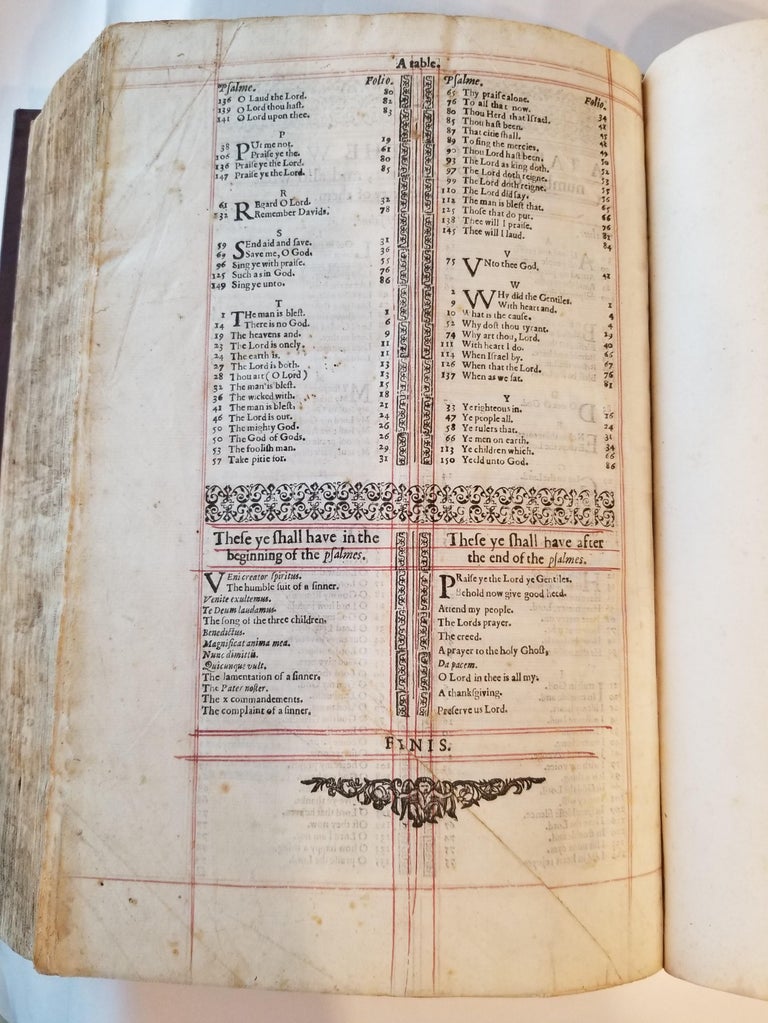 A table.
Pſalme. Folio.
136 O Laud the Lord. 80
139 O Lord thou haſt. 82
141 O Lord upon thee. 83
P
38 PUt me not. 19
106 Praiſe ye the. 61
136 Praiſe ye the Lord. 80
147 Praiſe ye the Lord. 85
R
61 REgard O Lord. 32
132 Remember Davids. 78
S
59 SEnd aid and ſave. 31
69 Save me, O God. 36
96 Sing ye with praiſe. 55
125 Such as in God. 76
149 Sing ye unto. 86
T
1 THe man is bleſt. 1
14 There is no God. 6
19 The heavens and. 9
23 The Lord is onely. 11
24 The earth is. 11
27 The Lord is both. 13
28 Thou art ( O Lord ) 13
32 The man is bleſt. 15
36 The wicked with. 18
41 The man is bleſt. 21
46 The Lord is our. 24
50 The mighty God. 26
50 The God of Gods. 26
53 The fooliſh man. 29
57 Take pitie for. 31
Pſalme. Folio.
65 Thy praiſe alone. 34
76 To all that now. 42
80 Thou Herd that Iſrael. 45
85 Thou haſt been. 48
87 That citie ſhall. 49
89 To ſing the mercies. 50
90 Thou Lord haſt been. 52
93 The Lord as king doth. 53
97 The Lord doth reigne. 55
99 The Lord doth reigne. 56
110 The Lord did ſay. 65
112 The man is bleſt that. 66
125 Thoſe that do put. 76
138 Thee will I praiſe. 82
145 Thee will I laud. 84
V
75 VNto thee God. 41
W
2 WHy did the Gentiles. 1
9 With heart and. 4
10 What is the cauſe. 4
52 Why doſt thou tyrant. 29
74 Why art thou, Lord. 40
111 With heart I do. 65
114 When Iſrael by. 67
126 When that the Lord. 76
137 When as we ſat. 81
Y
33 Ye righteous in. 16
47 Ye people all. 24
58 Ye rulers that. 31
66 Ye men on earth. 34
113 Ye children which. 66
150 Yeeld unto God. 86
Theſe ye ſhall have in the
beginning of the pſalmes.
VEni creator ſpiritus.
The humble ſuit of a ſinner.
Venite exultemus.
Te Deum laudamus.
The ſong of the three children.
Benedictus.
Magnificat anima mea.
Nunc dimittis.
Quicunque vult.
The lamentation of a ſinner.
The Pater noſter.
The x commandements.
The complaint of a ſinner.
Theſe ye ſhall have after
the end of the pſalmes.
PRaiſe ye the Lord ye Gentiles.
Behold now give good heed.
Attend my people.
The Lords prayer.
The creed.
A prayer to the holy Ghoſt,
Da pacem.
O Lord in thee is all my.
A thankſgiving.
Preſerve us Lord.
FINIS.